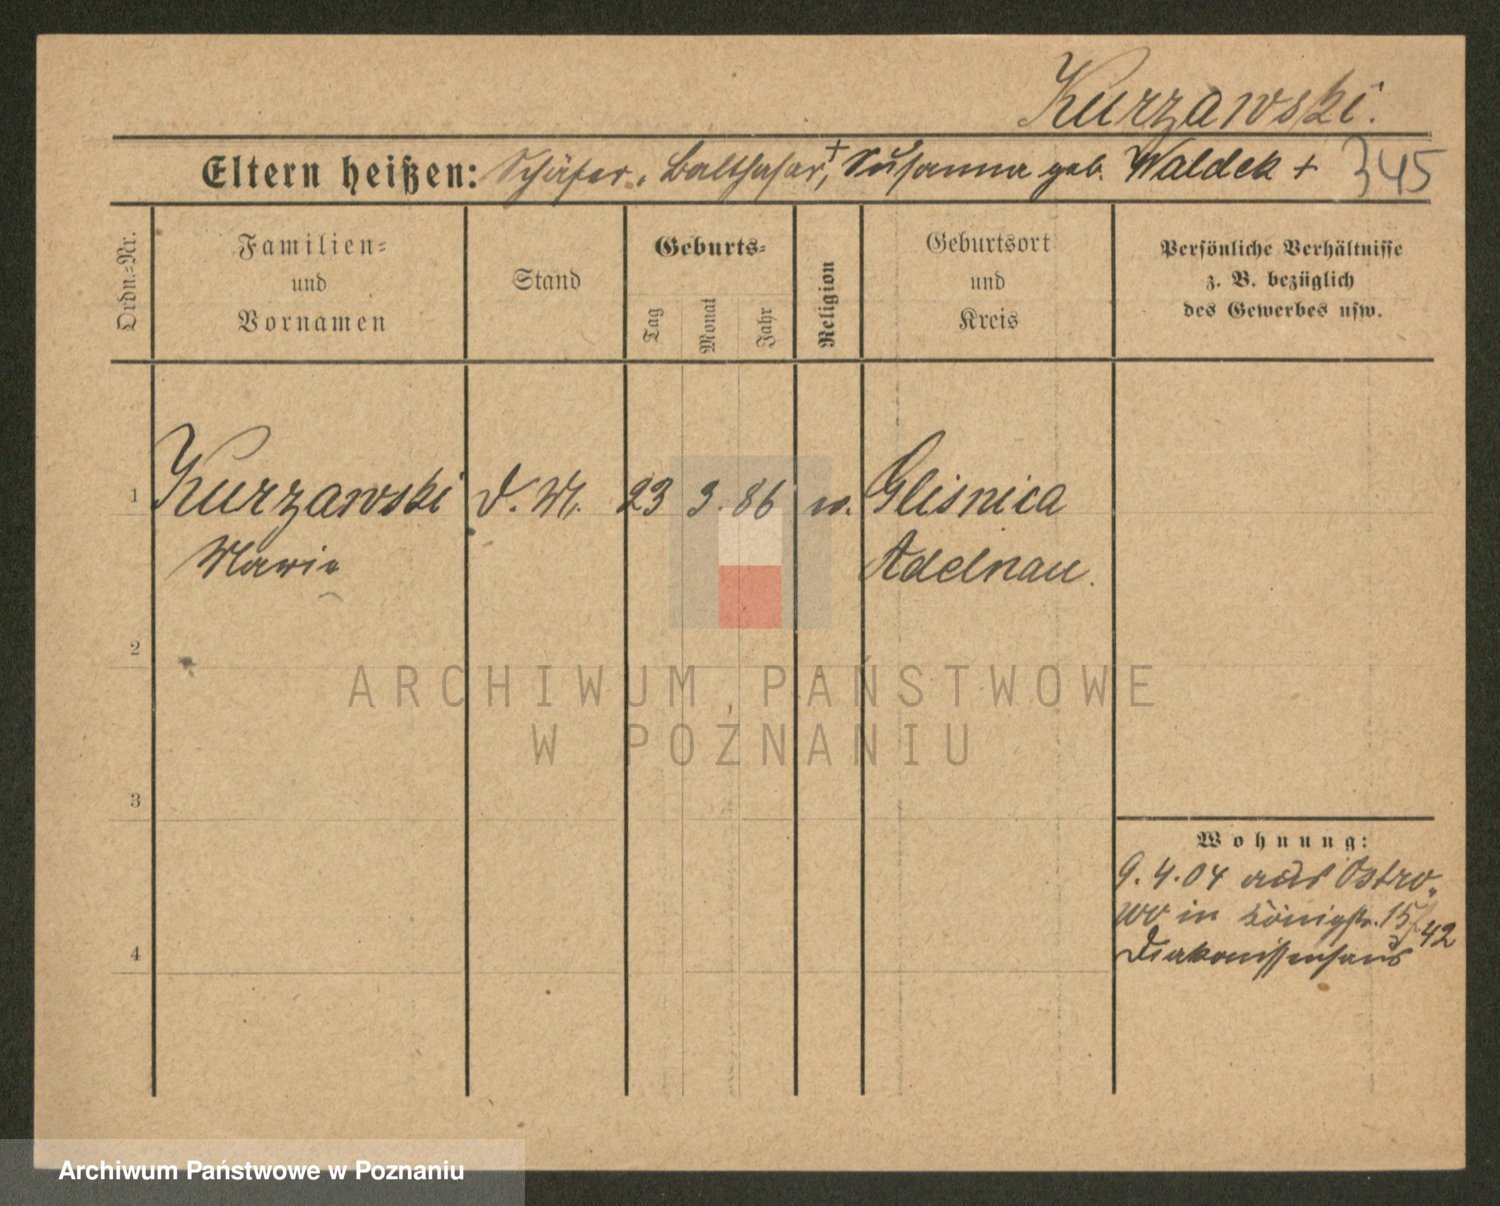 Kurzawski.
Eltern heißen: Schäfer, Balthasar +, Susanna geb. Waldek + 345
Ordn.=Nr.
Familien=
und
Vornamen
Stand
Geburts=
Tag
Monat
Jahr
Religion
Geburtsort
und
Kreis
Persönliche Verhältnisse
z. B. bezüglich
des Gewerbes usw.
1 Kurzawski D. M. 23 3. 86 Glisnica
Marie Adelnau.
2
ARCHIWUM PAŃSTWOWE
W POZNANIU
3
Wohnung:
9.4.04 aus Ostro-
wo in Königstr. 15/42
Diakonissenhaus
4
Archiwum Państwowe w Poznaniu